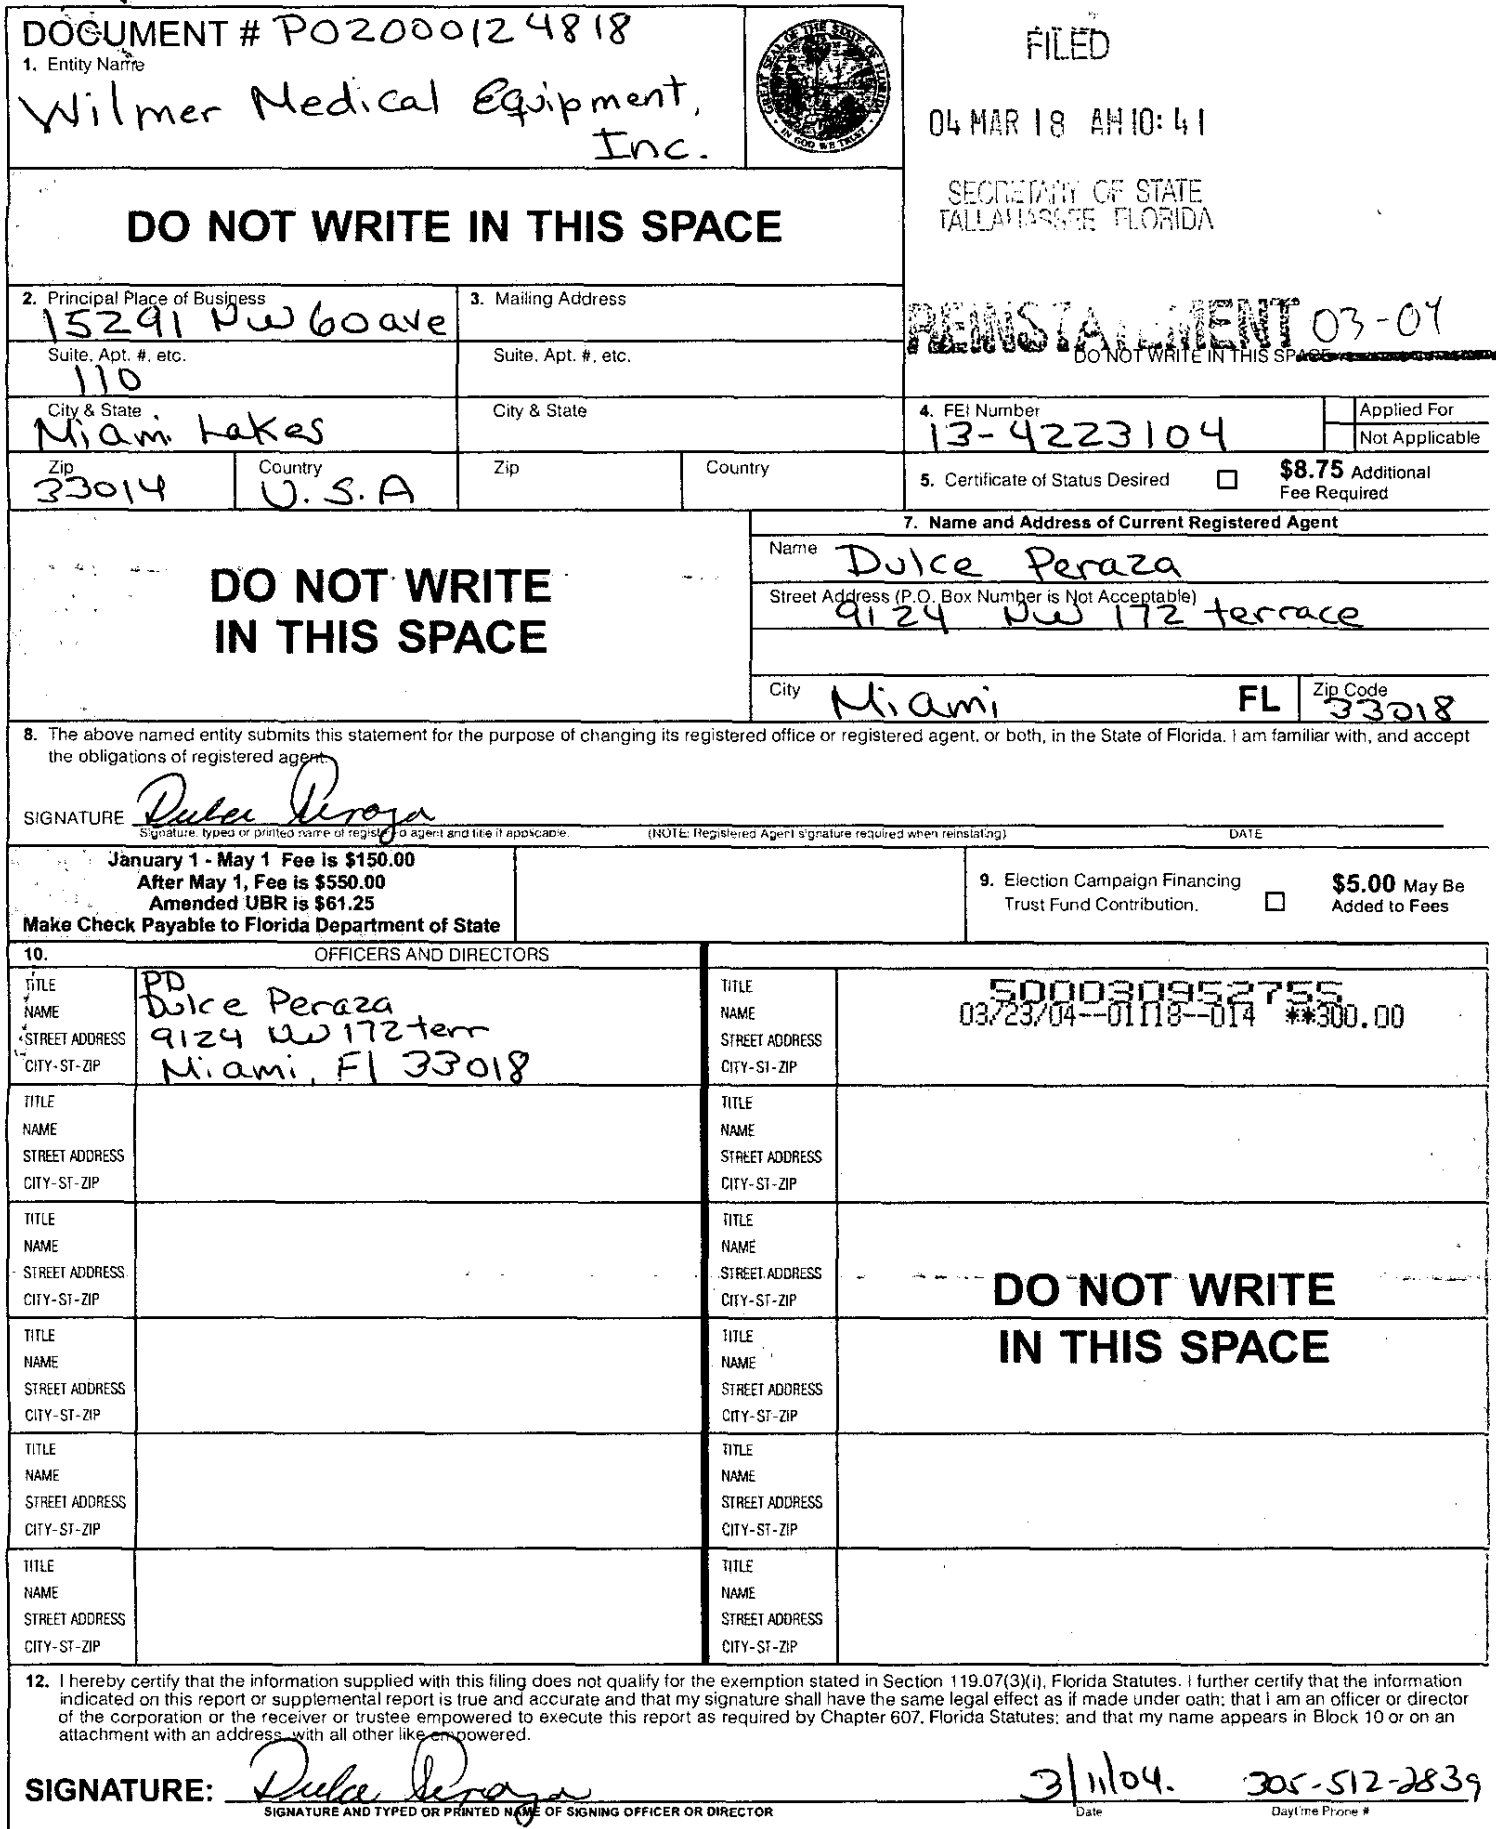 DOCUMENT # P02000124818
1. Entity Name
Wilmer Medical Equipment,
Inc.
GREAT SEAL OF THE STATE OF FLORIDA
IN GOD WE TRUST
FILED
04 MAR 18 AM 10:41
SECRETARY OF STATE
TALLAHASSEE FLORIDA
DO NOT WRITE IN THIS SPACE
REINSTATEMENT 03-04
DO NOT WRITE IN THIS SPACE
2. Principal Place of Business
15291 NW 60 ave
3. Mailing Address
Suite, Apt. #, etc.
110
Suite, Apt. #, etc.
City & State
Miami Lakes
City & State
4. FEI Number
13-4223104
Applied For
Not Applicable
Zip
33014
Country
U.S.A
Zip
Country
5. Certificate of Status Desired
$8.75 Additional
Fee Required
DO NOT WRITE
IN THIS SPACE
7. Name and Address of Current Registered Agent
Name Dulce Peraza
Street Address (P.O. Box Number is Not Acceptable)
9124 NW 172 terrace
City Miami FL Zip Code
33018
8. The above named entity submits this statement for the purpose of changing its registered office or registered agent, or both, in the State of Florida. I am familiar with, and accept
the obligations of registered agent.
SIGNATURE Dulce Peraza
Signature, typed or printed name of registered agent and title if applicable. (NOTE: Registered Agent signature required when reinstating) DATE
January 1 - May 1 Fee is $150.00
After May 1, Fee is $550.00
Amended UBR is $61.25
Make Check Payable to Florida Department of State
9. Election Campaign Financing
Trust Fund Contribution.
$5.00 May Be
Added to Fees
10. OFFICERS AND DIRECTORS
TITLE PD
NAME Dulce Peraza
STREET ADDRESS 9124 NW 172 terr
CITY-ST-ZIP Miami, Fl 33018
TITLE
NAME
STREET ADDRESS
CITY-ST-ZIP
500030952755
03/23/04--01118--014 **300.00
TITLE
NAME
STREET ADDRESS
CITY-ST-ZIP
TITLE
NAME
STREET ADDRESS
CITY-ST-ZIP
TITLE
NAME
STREET ADDRESS
CITY-ST-ZIP
TITLE
NAME
STREET ADDRESS
CITY-ST-ZIP
DO NOT WRITE
IN THIS SPACE
TITLE
NAME
STREET ADDRESS
CITY-ST-ZIP
TITLE
NAME
STREET ADDRESS
CITY-ST-ZIP
TITLE
NAME
STREET ADDRESS
CITY-ST-ZIP
TITLE
NAME
STREET ADDRESS
CITY-ST-ZIP
TITLE
NAME
STREET ADDRESS
CITY-ST-ZIP
TITLE
NAME
STREET ADDRESS
CITY-ST-ZIP
12. I hereby certify that the information supplied with this filing does not qualify for the exemption stated in Section 119.07(3)(i), Florida Statutes. I further certify that the information
indicated on this report or supplemental report is true and accurate and that my signature shall have the same legal effect as if made under oath; that I am an officer or director
of the corporation or the receiver or trustee empowered to execute this report as required by Chapter 607, Florida Statutes; and that my name appears in Block 10 or on an
attachment with an address, with all other like empowered.
SIGNATURE: Dulce Peraza 3/11/04. 305-512-2839
SIGNATURE AND TYPED OR PRINTED NAME OF SIGNING OFFICER OR DIRECTOR Date Daytime Phone #